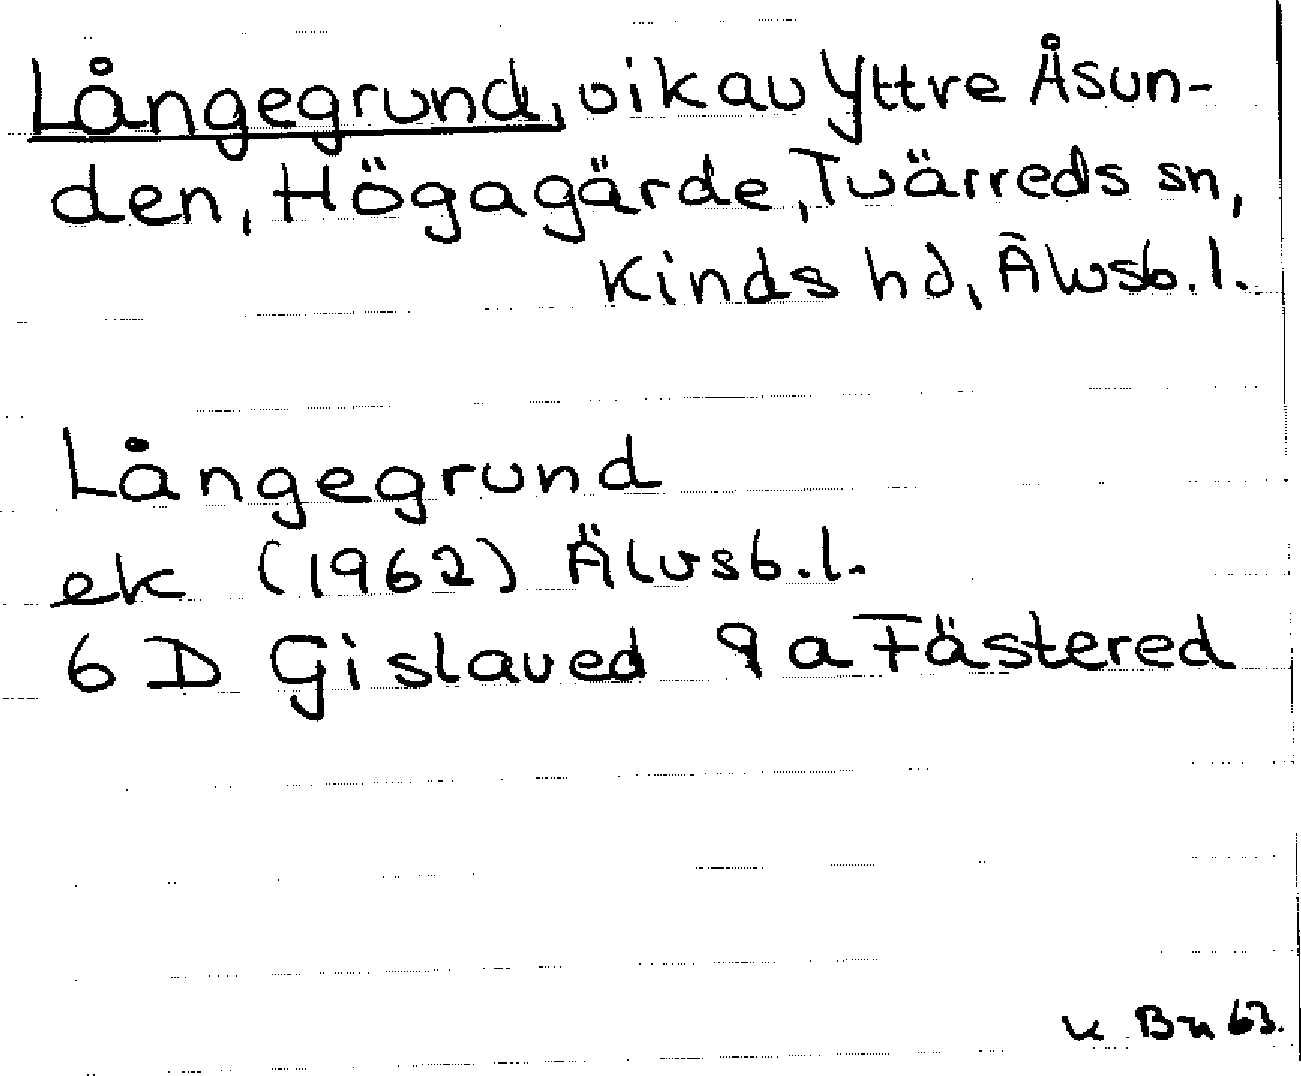 Långegrund, vik av Yttre Åsun-
den, Högagärde, Tvärreds sn,
Kinds hd, Älvsb.l.
Långegrund
ek (1962) Älvsb.l.
6 D Gislaved 9 a Fästered
K Bn 63.